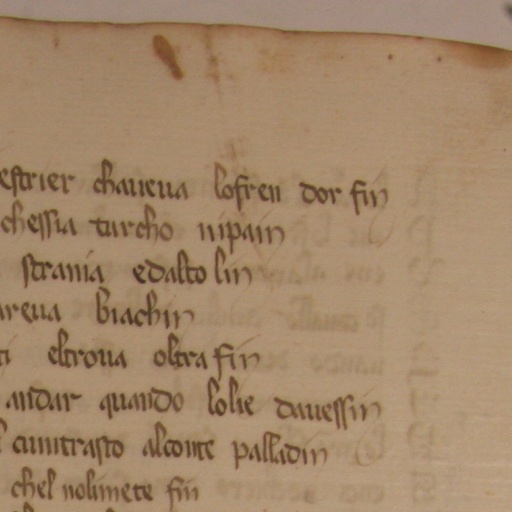 estrier chaueua lofren dor fin
chessia turcho nipain
strania edalto lin
areua biachin
ti eltroua oltra fin
andar quando lolie dauessin
l cuntrasto alconte palladin
chel nolimete fin